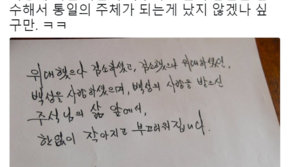 수해서 통일의 주체가 되는게 낫지 않겠나 싶
구만. ㅋㅋ
위대했으나 검소하셨고, 검소했으나 위대하셨던,
백성을 사랑하셨으며, 백성의 사랑을 받으신
주석님의 삶 앞에서,
한없이 작아지고 부끄러워집니다.